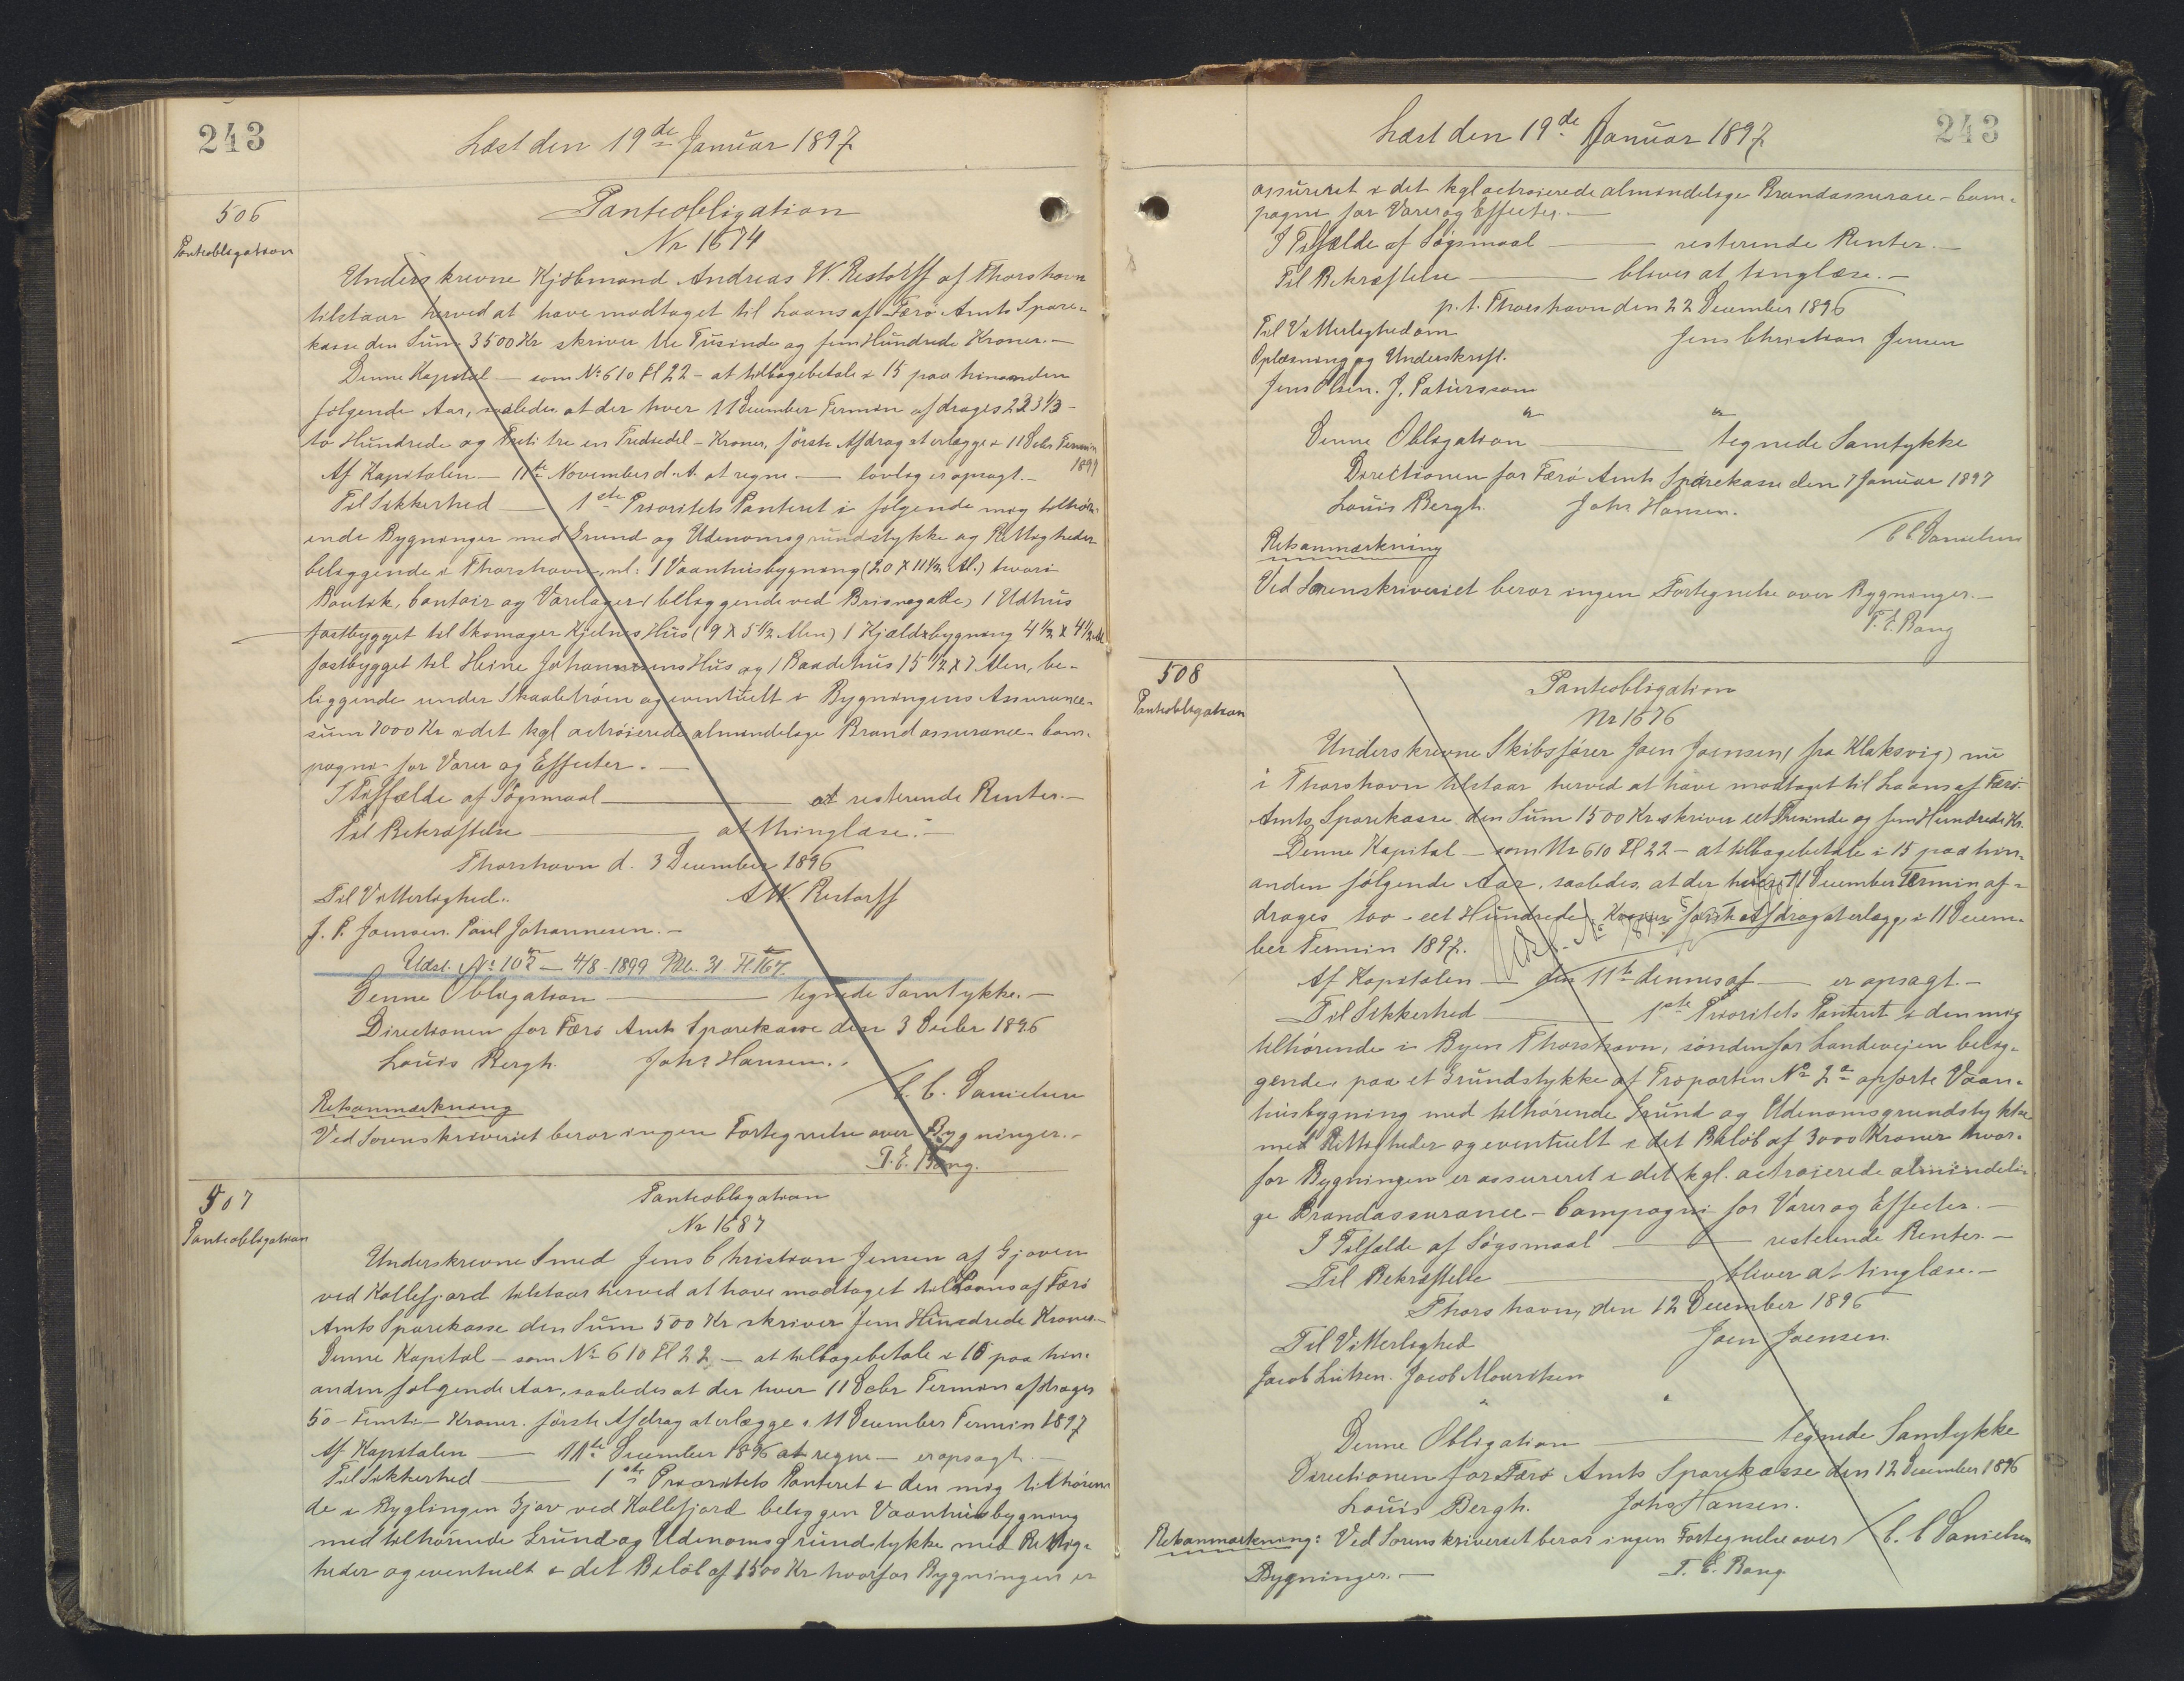 243
Læst den 19de Januar 1897
506
Panteobligation
Panteobligation
Nr 1674
Underskrevne Kjøbmand Andreas W. Restorff af Thorshavn
tilstaar herved at have modtaget til Laans af Færø Amts Spare-
kasse den Sum 3500 Kr skriver tre Tusinde og fem Hundrede Kroner. —
Denne Kapital — som No 610 Fl 22 — at tilbagebetale i 15 paa hinanden
følgende Aar, saaledes at der hver 11 December Termin afdrages 233 1/3 —
to Hundrede og Treti tre en Tredjedel — Kroner, første Afdrag at erlægge i 11 Decbr Termin
1897
Af Kapitalen — 11te November d. A. at regne — lovlig er opsagt. —
Til Sikkerhed — 1ste Prioritets Panteret i følgende mig tilhør-
ende Bygninger med Grund og Udenomsgrundstykke og Rettigheder
beliggende i Thorshavn, nl: 1 Vaanhusbygning (20 X 11 1/2 Al.) hvori
Boutik, Contoir og Varelager (beliggende ved Brisnegatte) 1 Udhus
fastbygget til Skomager Kjelnes Hus (9 X 5 1/2 Alen) 1 Kjældrbygning 4 1/2 X 4 1/2 Al
fastbygget til Heine Johannesens Hus og 1 Baadehus 15 1/2 X 7 Alen, be-
liggende under Skaaletrøen og eventuelt i Bygningens Assurance-
sum 7000 Kr i det kgl octroierede almindelige Brandassurance-Com-
pagni for Varer og Effecter. —
I Tilfælde af Søgsmaal — at resterende Renter. —
Til Bekræftelse — at thinglæse. —
Thorshavn d. 3 December 1896
Til Vitterlighed. A W. Restorff
J. P. Joensen. Paul Johannesen. —
Udsl. No 105 — 4/8 1899 Ptb. 31 Fl 167.
Denne Obligation — tegnede Samtykke. —
Directionen for Færø Amts Sparekasse den 3 Decbr 1896
Louis Bergh. Johs Hansen.
C. C. Danielsen
Retsanmærkning
Ved Sorenskriveriet beror ingen Fortegnelse over Bygninger. —
T. E. Bang.
507
Panteobligation
Panteobligation
Nr 1687
Underskrevne Smed Jens Christian Jensen af Gjoven
ved Kollefjord tilstaar herved at have modtaget til Laans af Færø
Amts Sparekasse den Sum 500 Kr skriver fem Hundrede Kroner —
Denne Kapital — som No 610 Fl 22 — at tilbagebetale i 10 paa hin-
anden følgende Aar, saaledes at der hver 11 Decbr Termin afdrages
50 — Femti — Kroner. første Afdrag at erlægge i 11 December Termin 1897
Af Kapitalen — 11te December 1896 at regne — er opsagt. —
Til Sikkerhed — 1ste Prioritets Panteret i den mig tilhøren
de i Byglingen Gjov ved Kollefjord beliggen Vaanhusbygning
med tilhørende Grund og Udenomsgrundstykke med Rettig-
heder og eventuelt i det Beløb af 1500 Kr hvorfor Bygningen er
Læst den 19de Januar 1897
243
assureret i det kgl octroierede almindelige Brandassurace-Com-
pagni for Varer og Effecter. —
I Tilfælde af Søgsmaal — resterende Renter. —
Til Bekræftelse — bliver at tinglæse. —
p. t. Thorshavn den 22 December 1896
Til Vitterlighed om Jens Christian Jensen
Oplæsning og Underskrift.
Jens Olsen. J. Patursson
Denne Obligation — tegnede Samtykke
Directionen for Færø Amts Sparekasse den 7 Januar 1897
Louis Bergh. Johs Hansen.
C C Danielsen
Retsanmærkning
Ved Sorenskriveriet beror ingen Fortegnelse over Bygninger. —
T. E. Bang
508
Panteobligation
Panteobligation
Nr 1676
Underskrevne Skibsfører Joen Joensen (fra Klaksvig) nu
i Thorshavn tilstaar herved at have modtaget til Laans af Færø
Amts Sparekasse den Sum 1500 Kr skriver eet Tusinde og fem Hundrede Kr.
Denne Kapital — som Nr 610 Fl 22 — at tilbagebetale i 15 paa hin-
anden følgende Aar, saaledes, at der hver 11 December Termin af-
drages 100 — eet Hundrede — Kroner første Afdrag at erlægge i 11 Decem-
ber Termin 1897.
Af Kapitalen — den 11te dennes af — er opsagt. —
Til Sikkerhed — 1ste Prioritets Panteret i den mig
tilhørende i Byen Thorshavn, sønden for Landevejen belig-
gende, paa et Grundstykke af Træparten No 2a opførte Vaan-
husbygning med tilhørende Grund og Udenomsgrundstykke
med Rettigheder og eventuelt i det Beløb af 3000 Kroner hvor-
for Bygningen er assureret i det kgl. octroierede almindeli-
ge Brandassurance-Compagni for Varer og Effecter. —
I Tilfælde af Søgsmaal — resterende Renter. —
Til Bekræftelse — bliver at tinglæse. —
Thorshavn, den 12 December 1896
Til Vitterlighed Joen Joensen.
Jacob Lützen. Jacob Mouritsen
Denne Obligation — tegnede Samtykke
Directionen for Færø Amts Sparekasse den 12 December 1896
Louis Bergh. Johs Hansen.
Retsanmærkning: Ved Sorenskriveriet beror ingen Fortegnelse over C. C Danielsen
Bygninger. — T. E. Bang